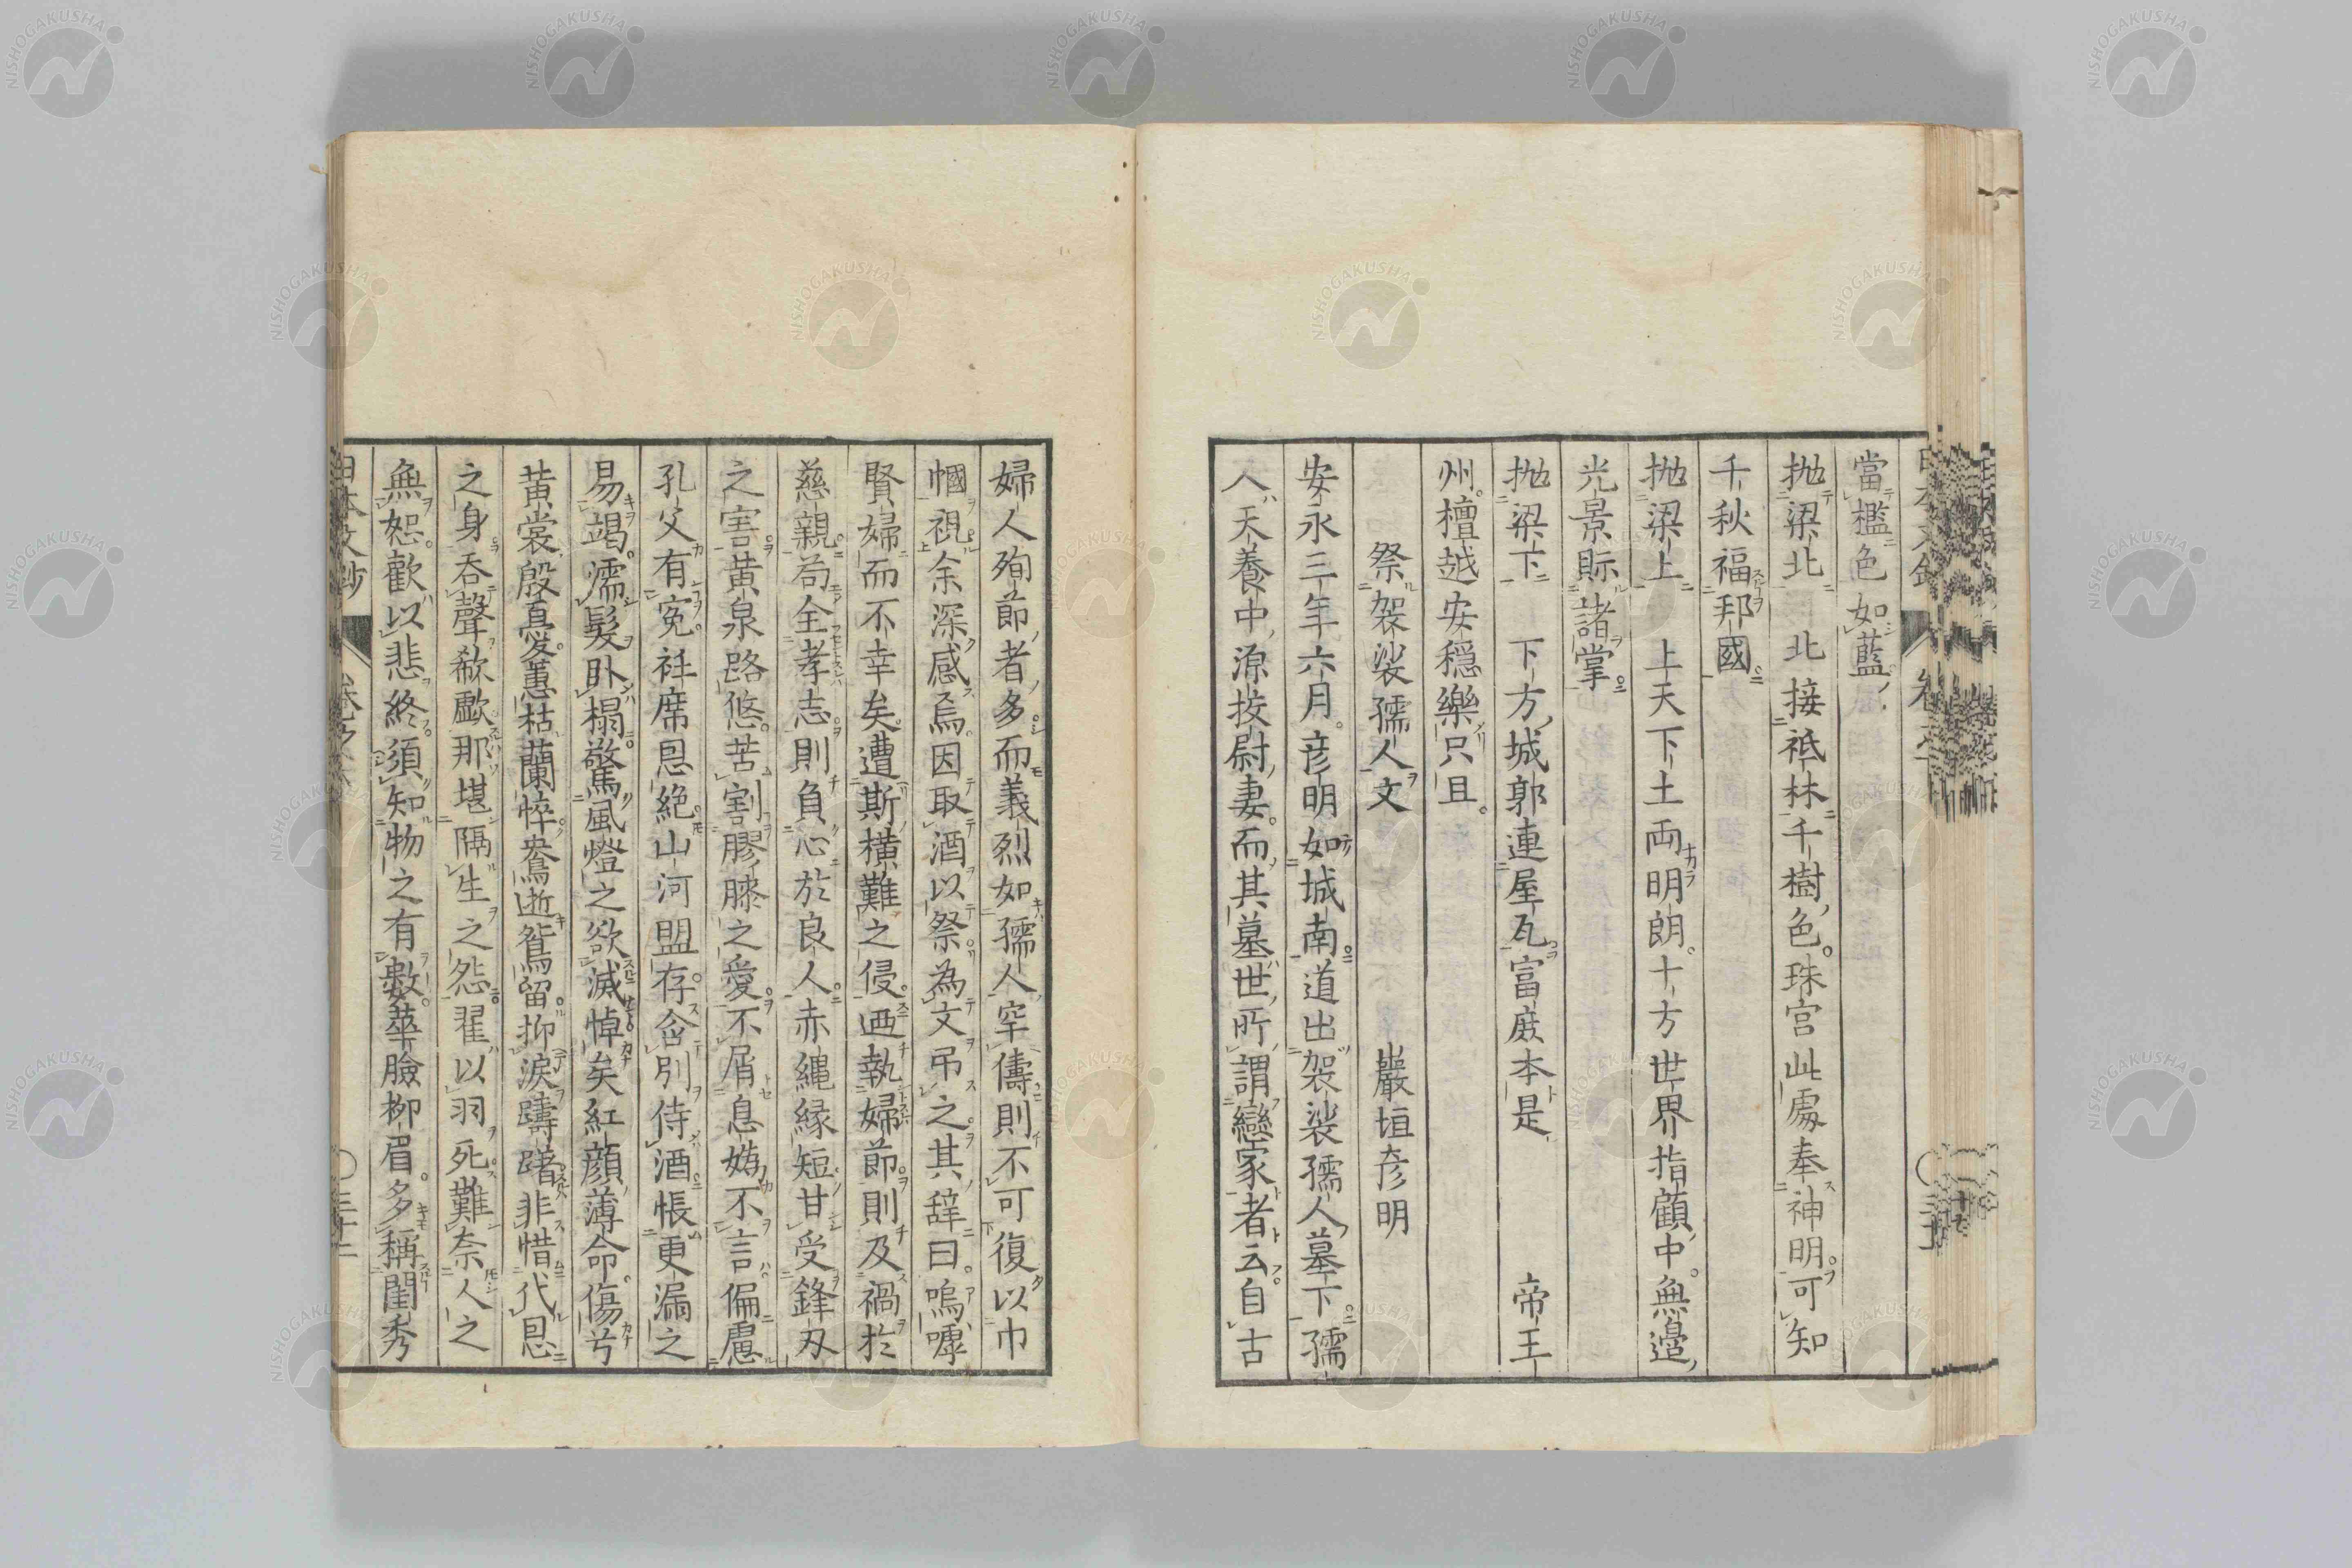 當檻色如藍
抛梁北 北接祗林千樹色珠宮此處奉神明可知
千秋福邦國
抛梁上 上天下土両明朗十方世界指顧中無邉
光景眎諸掌
抛梁下 下方城郭連屋瓦富庶本是 帝王
州檀越安穏樂只且
祭袈裟孺人文 巖垣彦明
安永三年六月彦明如城南道出袈裟孺人墓下孺
人天養中源按尉妻而其墓世所謂戀家者云自古
婦人殉節者多而義烈如孺人罕儔則不可復以巾
幗視余深感焉因取酒以祭為文吊之其辞曰嗚嘑
賢婦而不幸矣遭斯横難之侵迺執婦節則及禍於
慈親苟全孝志則負心於良人赤縄縁短甘受鋒刃
之害黄泉路悠苦割膠膝之愛不屑息媯不言偏慮
孔父有寃衽席恩絶山河盟存叴別侍酒帳更漏之
易竭濡髮臥榻驚風燈之欲滅悼矣紅顔薄命傷兮
黄裳殷憂蕙枯蘭悴鴦逝鴛留抑涙躊躇非惜代恩
之身呑聲欷歔那堪隔生之怨翟以羽死難奈人之
無恕歡以悲終須知物之有數蕣臉栁眉多稱閨秀
日本文鈔 卷之 三十二